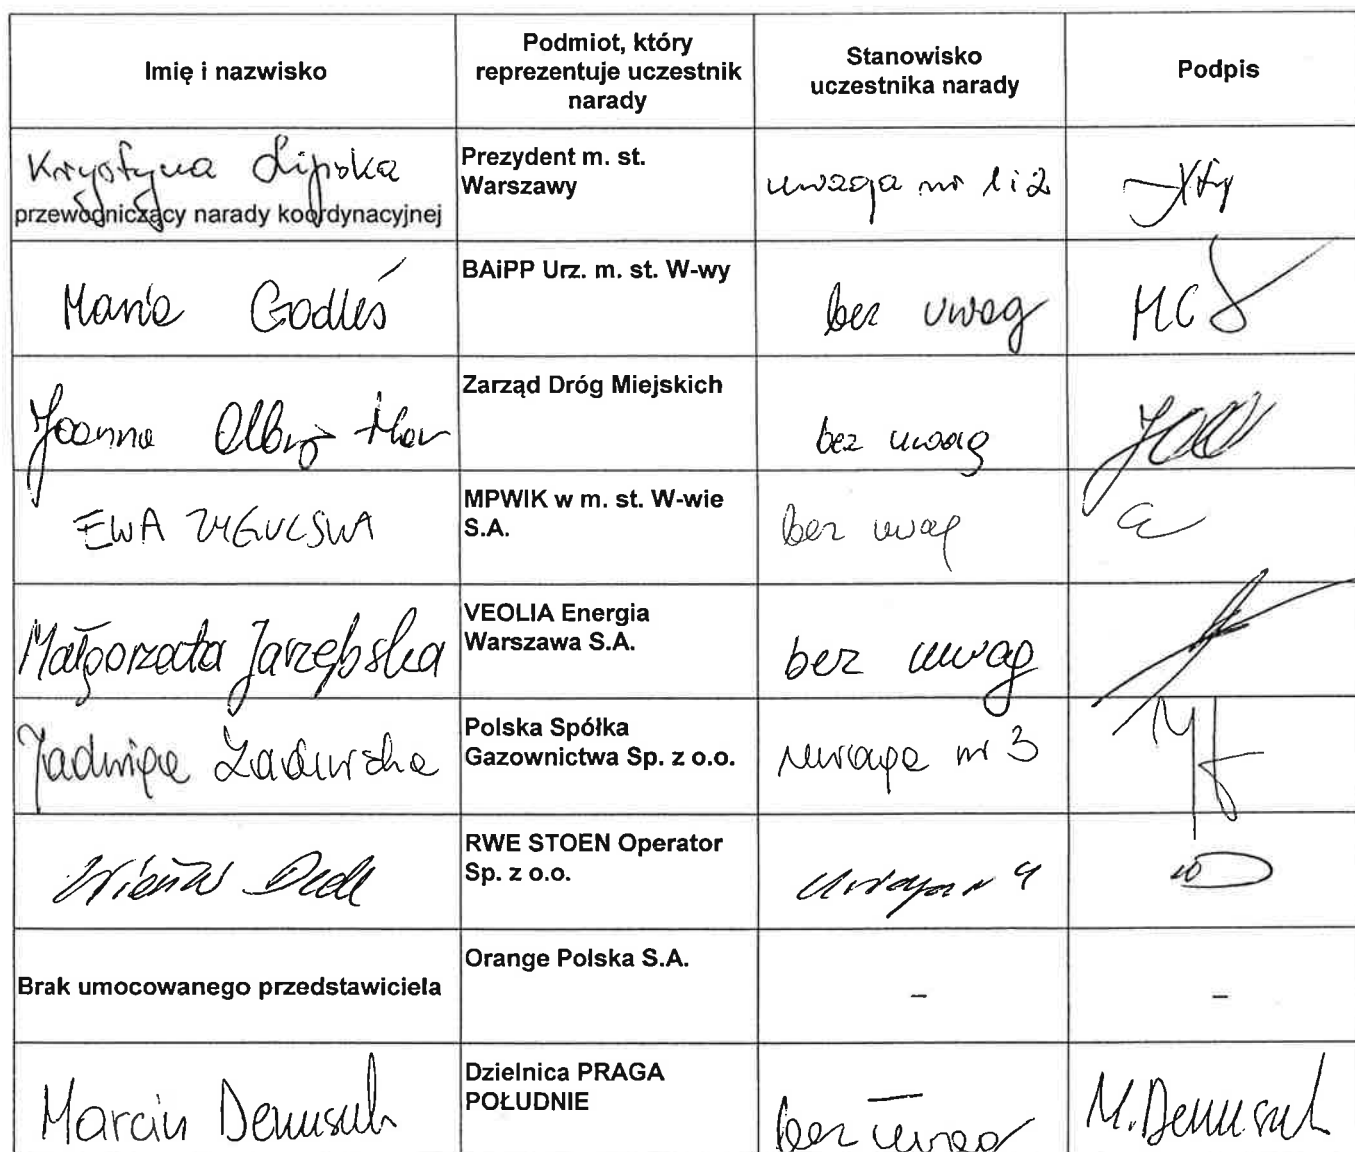 Imię i nazwisko
Podmiot, który
reprezentuje uczestnik
narady
Stanowisko
uczestnika narady
Podpis
Krystyna Lipska
przewodniczący narady koordynacyjnej
Prezydent m. st.
Warszawy
uwaga nr 1 i 2
Maria
BAiPP Urz. m. st. W-wy
bez uwag
Joanna
Zarząd Dróg Miejskich
bez uwag
EWA
MPWIK w m. st. W-wie
S.A.
bez uwag
Małgorzata Jarzębska
VEOLIA Energia
Warszawa S.A.
bez uwag
Jadwiga
Polska Spółka
Gazownictwa Sp. z o.o.
uwaga nr 3
RWE STOEN Operator
Sp. z o.o.
uwaga nr 4
Brak umocowanego przedstawiciela
Orange Polska S.A.
–
–
Marcin
Dzielnica PRAGA
POŁUDNIE
bez uwag